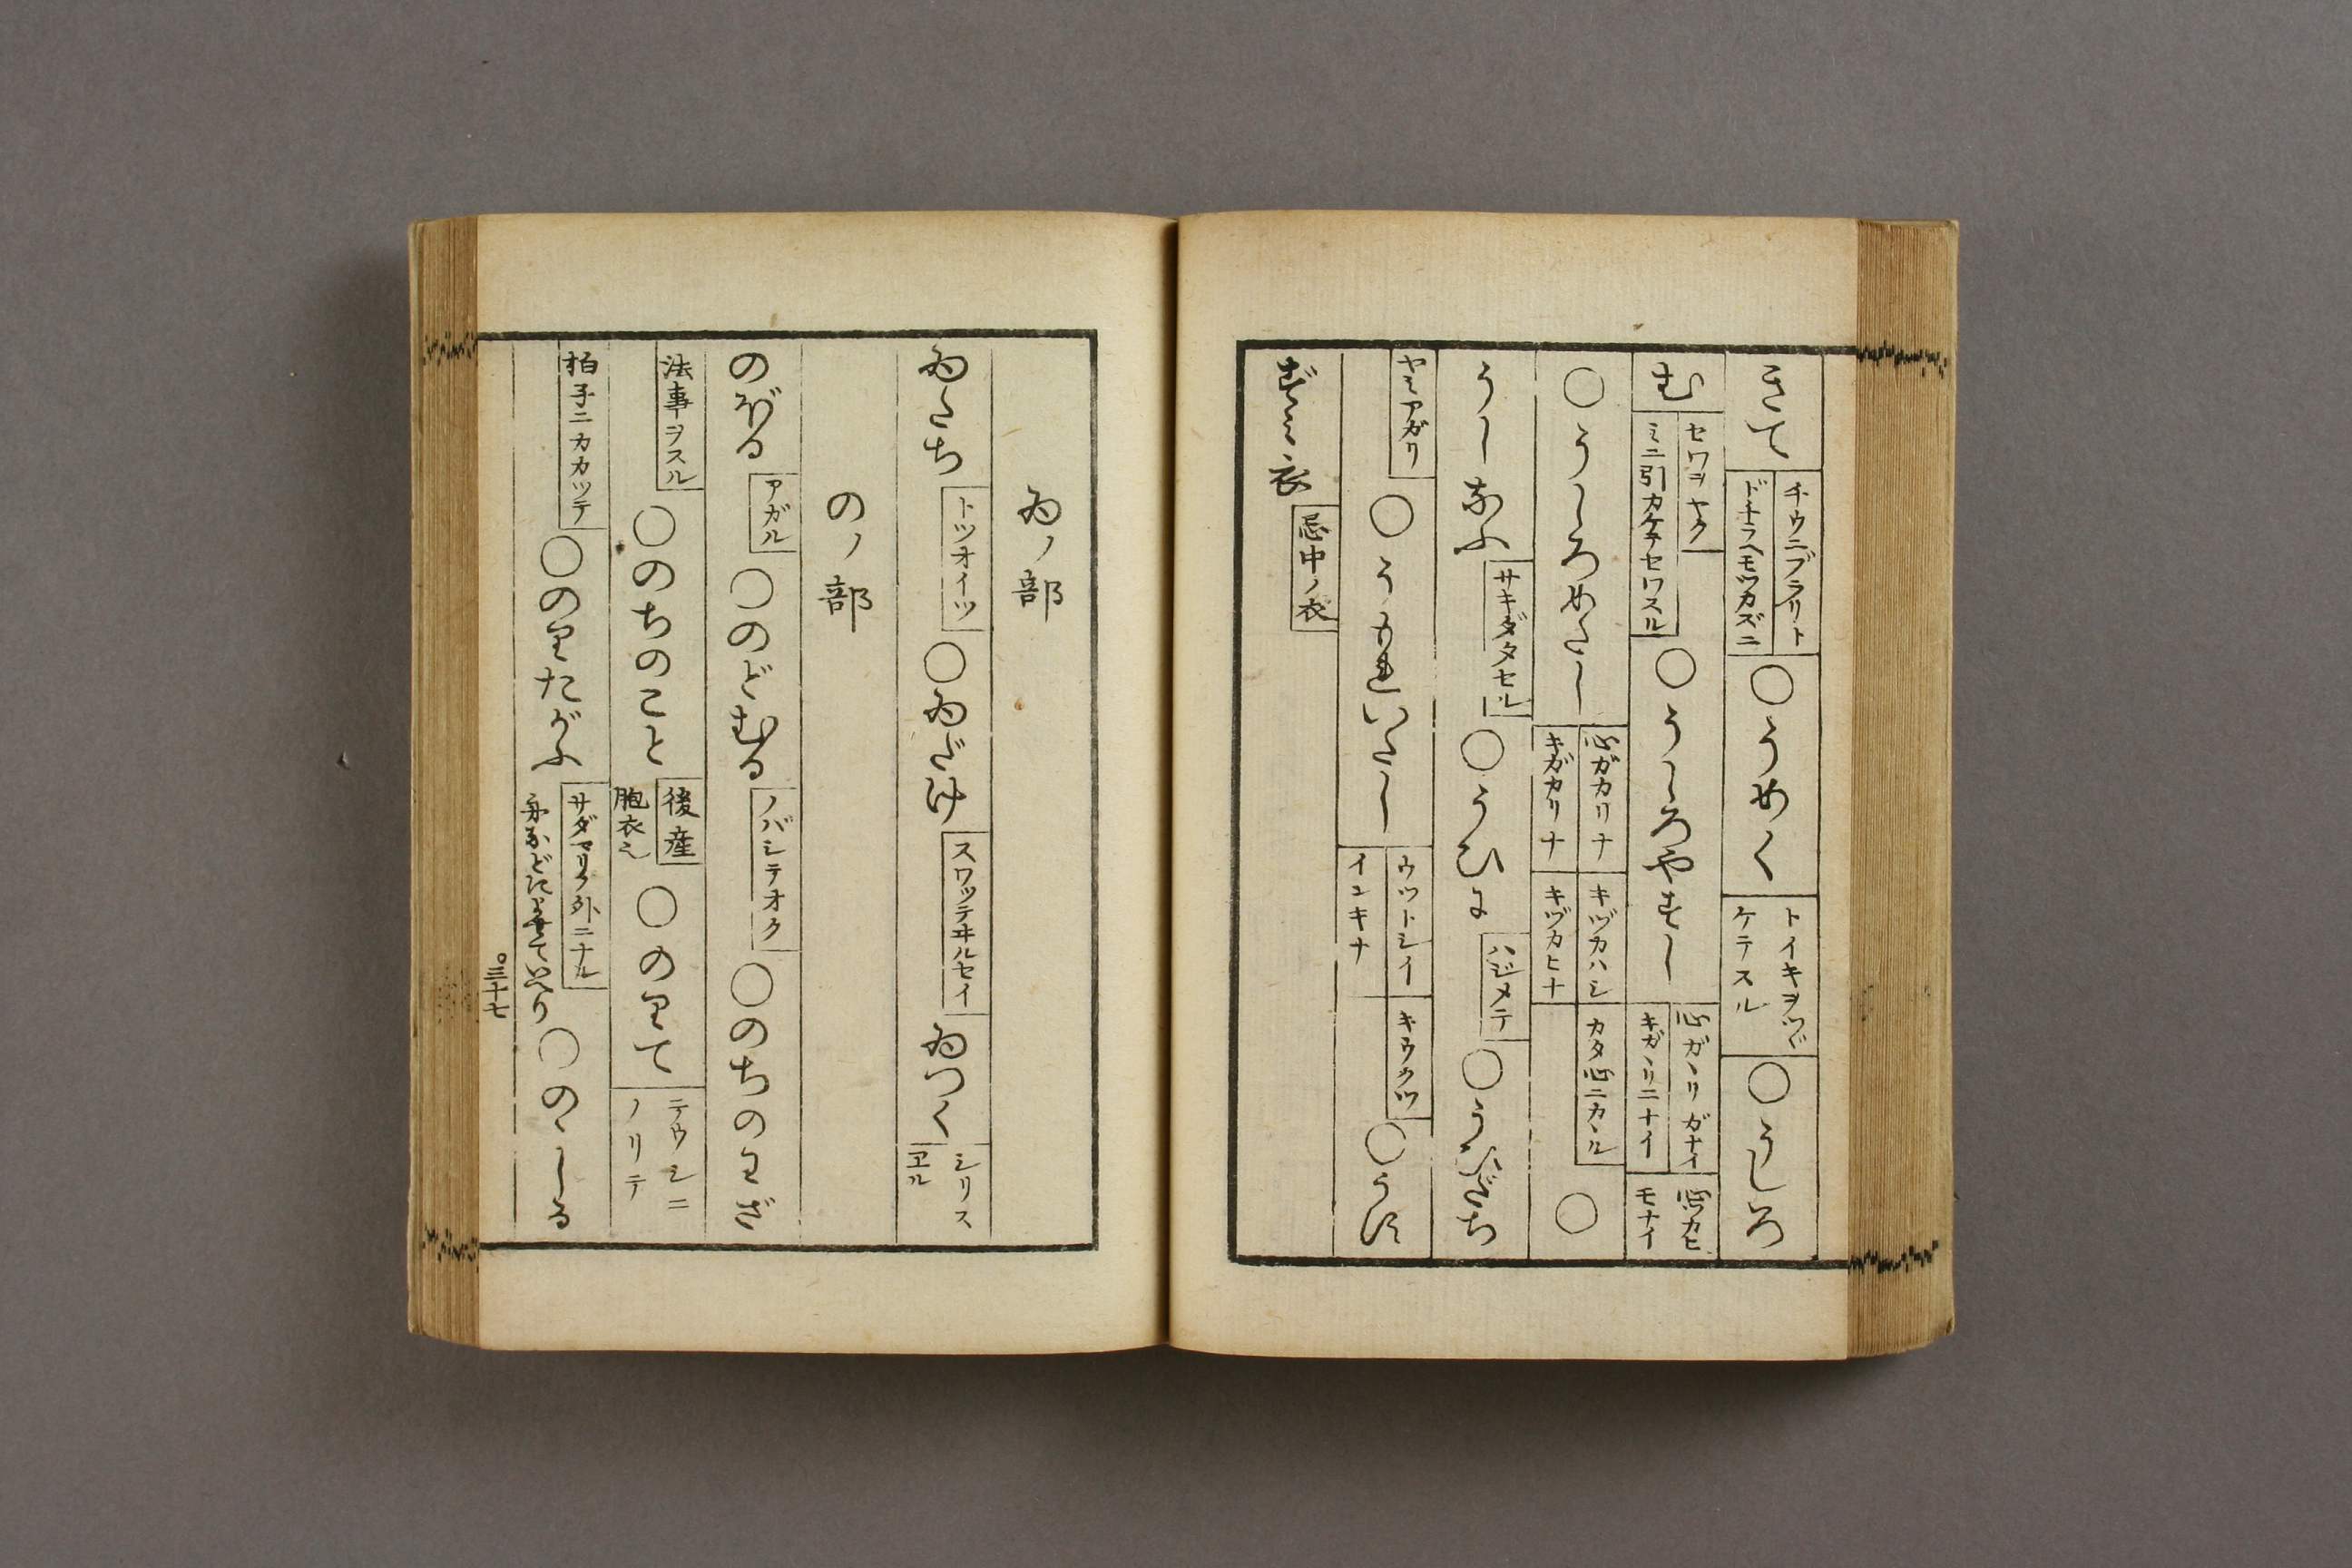 きて チウニブラリト ドチラヘモツカズニ ○うめく トイキヲツグ ケテスル ○うしろ
む セワヲヤク ミニ引カケテセワスル ○うしろやすし 心ガヽリガナイ キガヽリニナイ モナイ
○うしろめたし 心ガカリナ キガカリナ キヅカハシ キヅカヒナ カタ心ニカヽル ○
うしなふ サキダタセル ○うひに ハジメテ ○うひだち
ヤミアガリ ○うもれいたし ウツトシイ インキナ キウクツ ○うす
ずみ衣 忌中ノ衣
ゐノ部
ゐたち トツオイツ ○ゐだけ スワツテヰルセイ ゐつく シリス ヱル
のノ部
のぼる アガル ○のどむる ノバシテオク ○のちのわざ
法事ヲスル ○のちのこと 後産 胞衣也 ○のりて テウシニ ノリテ
拍子ニカカツテ ○のりたがふ サダマリノ外ニナル ○のゝしる
三十七